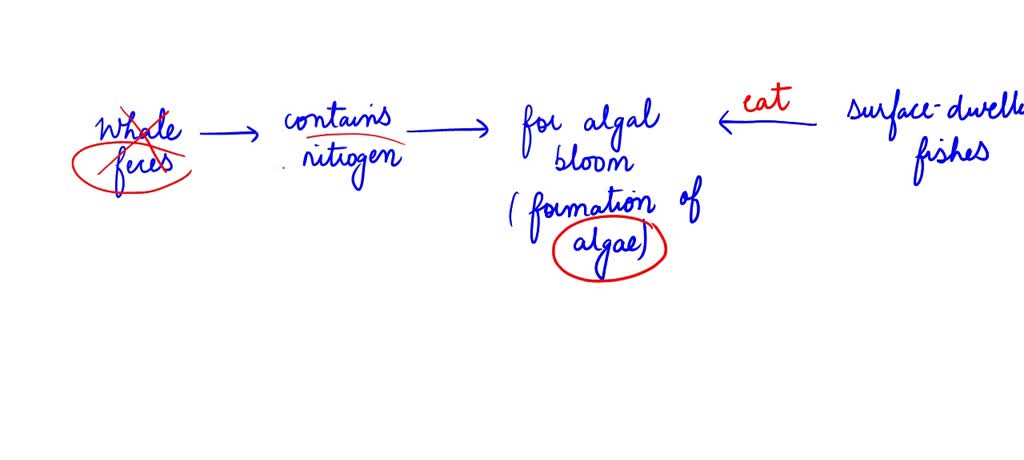 Whale → contains → for algal ← eat surface-dwelle
feces nitrogen bloom fishes
(formation of
algae)